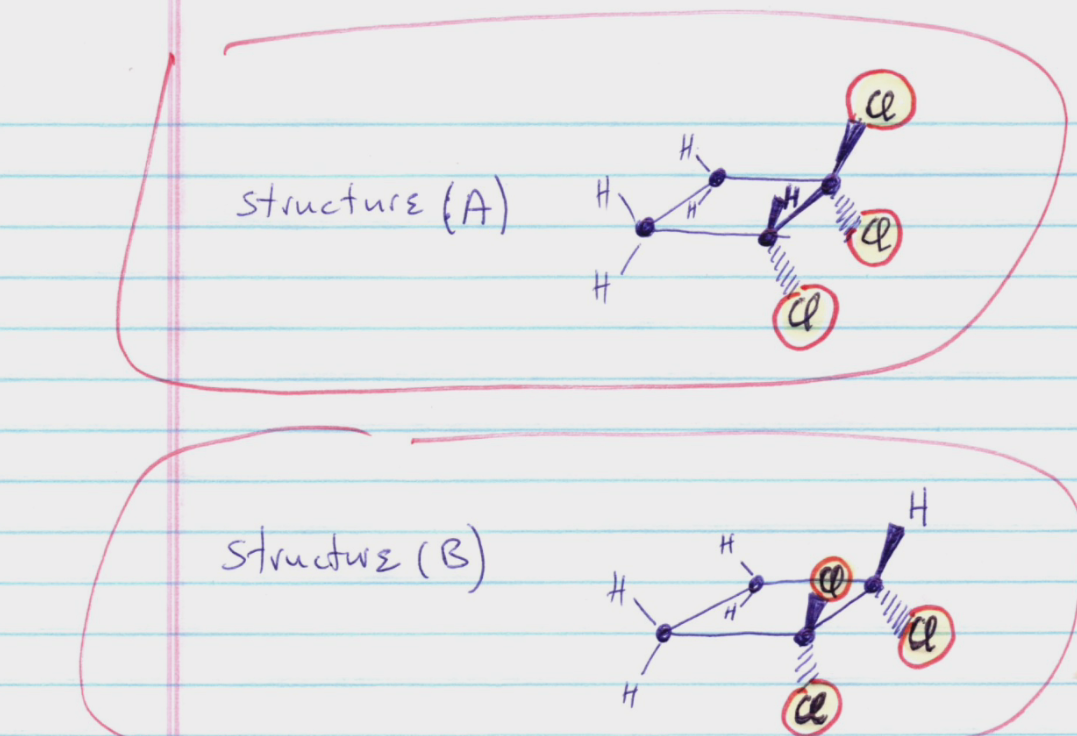 Cl
H
structure (A)
H
H
H
Cl
H
Cl
H
structure (B)
H
Cl
H
H
Cl
H
Cl